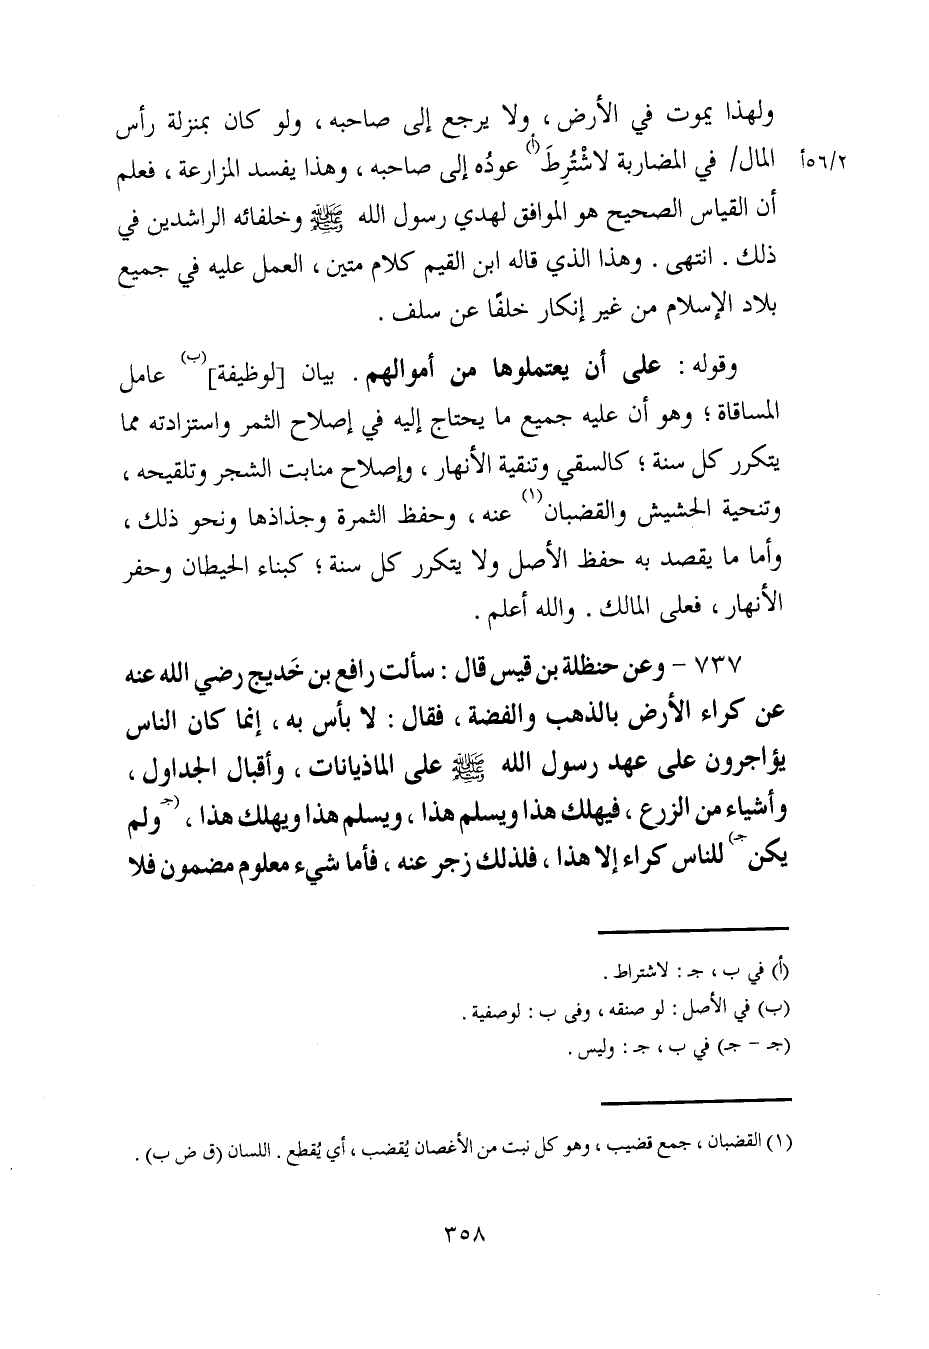 ولهذا يموت في الأرض ، ولا يرجع إلى صاحبه ، ولو كان بمنزلة رأس
المال/ في المضاربة لاشْتُرِطَ(أ) عودُه إلى صاحبه ، وهذا يفسد المزارعة ، فعلم
٥٦/٢أ
أن القياس الصحيح هو الموافق لهدي رسول الله ﷺ وخلفائه الراشدين في
ذلك . انتهى . وهذا الذي قاله ابن القيم كلام متين ، العمل عليه في جميع
بلاد الإسلام من غير إنكار خلفًا عن سلف .
وقوله : على أن يعتملوها من أموالهم . بيان [لوظيفة](ب) عامل
المساقاة ؛ وهو أن عليه جميع ما يحتاج إليه في إصلاح الثمر واستزادته مما
يتكرر كل سنة ؛ كالسقي وتنقية الأنهار ، وإصلاح منابت الشجر وتلقيحه ،
وتنحية الحشيش والقضبان(١) عنه ، وحفظ الثمرة وجذاذها ونحو ذلك ،
وأما ما يقصد به حفظ الأصل ولا يتكرر كل سنة ؛ كبناء الحيطان وحفر
الأنهار ، فعلى المالك . والله أعلم .
٧٣٧ – وعن حنظلة بن قيس قال : سألت رافع بن خَديج رضي الله عنه
عن كراء الأرض بالذهب والفضة ، فقال : لا بأس به ، إنما كان الناس
يؤاجرون على عهد رسول الله ﷺ على الماذيانات ، وأقبال الجداول ،
وأشياء من الزرع ، فيهلك هذا ويسلم هذا ، ويسلم هذا ويهلك هذا ، (جـ ولم
يكن جـ) للناس كراء إلا هذا ، فلذلك زجر عنه ، فأما شيء معلوم مضمون فلا
(أ) في ب ، جـ : لاشتراط .
(ب) في الأصل : لو صنقه ، وفى ب : لوصفية .
(جـ – جـ) في ب ، جـ : وليس .
(١) القضبان ، جمع قضيب ، وهو كل نبت من الأغصان يُقضب ، أي يُقطع . اللسان (ق ض ب) .
٣٥٨